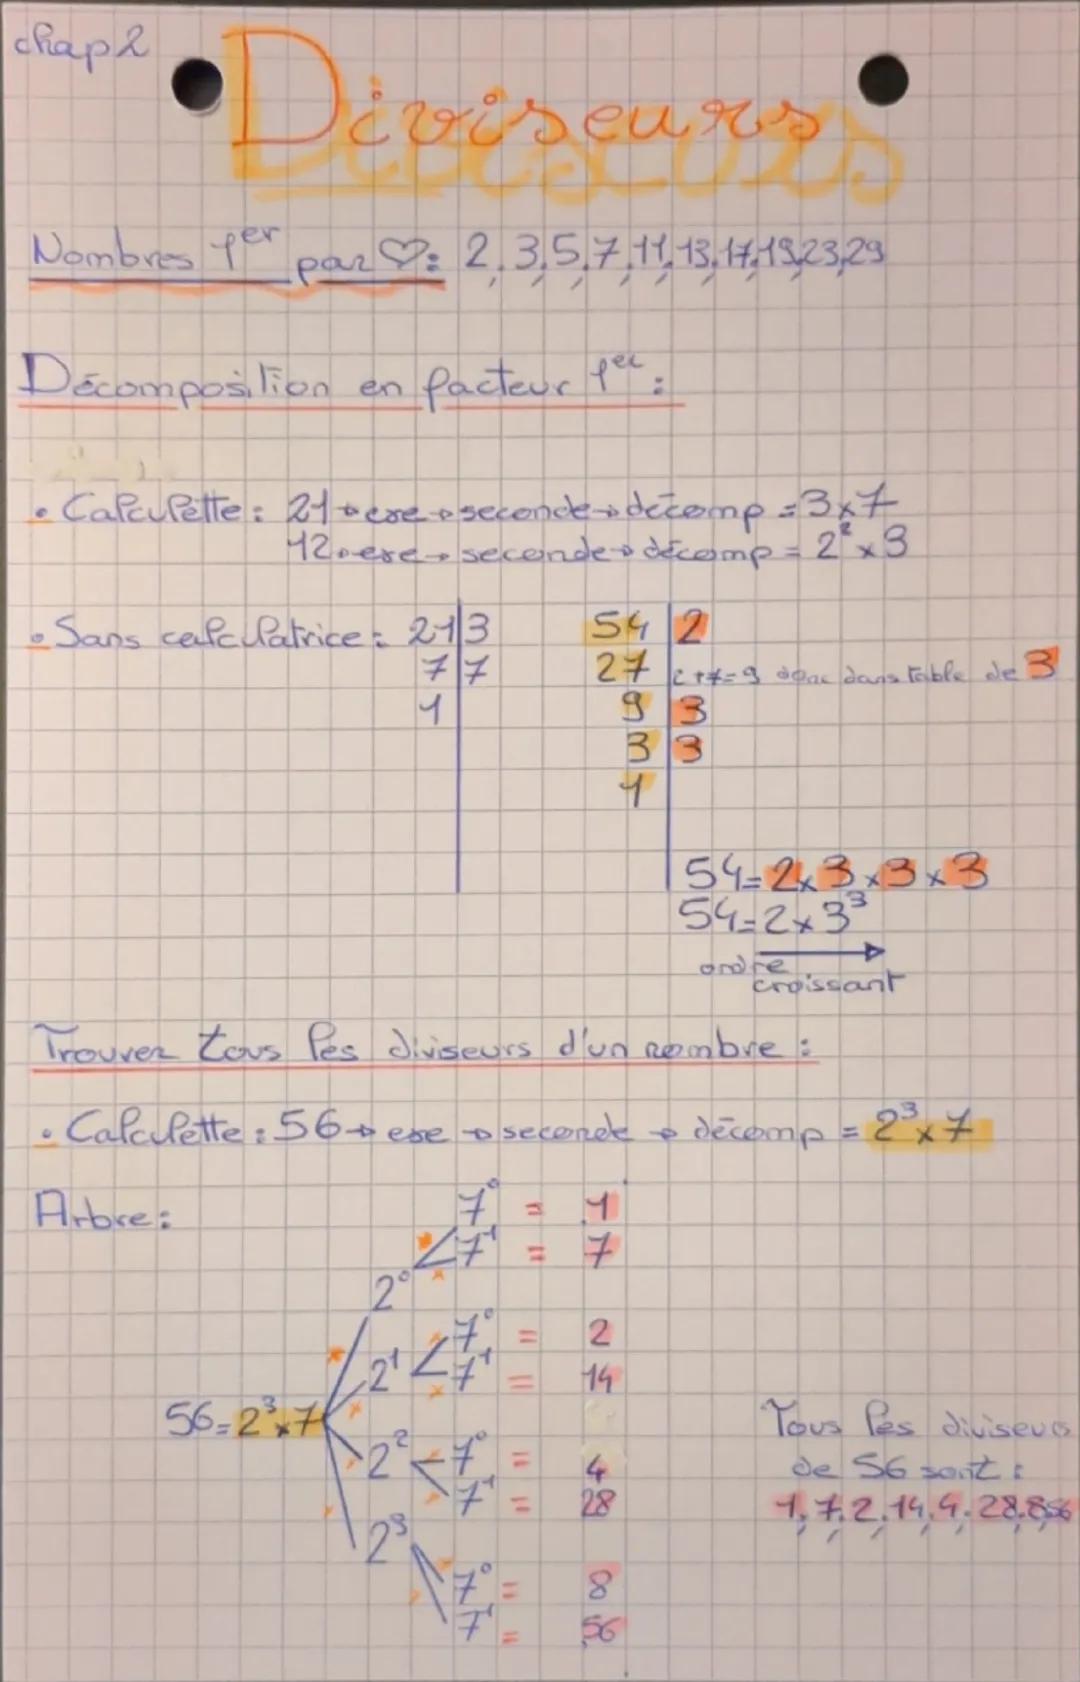 chap 2
Diviseurs
Nombres 1er par ♡: 2,3,5,7,11,13,17,19,23,29
Décomposition en facteur 1er :
• Calculette : 21 → exe → seconde → décomp = 3x7
12 → exe → seconde → décomp = 2² x 3
• Sans calculatrice : 21|3
7|7
1
54|2
27|2+7=9 donc dans table de 3
9|3
3|3
1
54=2x3x3x3
54=2x3³
ordre croissant
Trouver tous les diviseurs d'un nombre :
• Calculette : 56 → exe → seconde → décomp = 2³x7
Arbre :
56=2³x7
2⁰
7⁰ = 1
7¹ = 7
2¹
7⁰ = 2
7¹ = 14
2²
7⁰ = 4
7¹ = 28
2³
7⁰ = 8
7¹ = 56
Tous les diviseurs
de 56 sont :
1,7,2,14,4,28,8,56